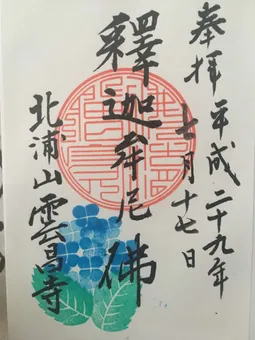 奉拝
平成二十九年
七月十七日
釋迦牟尼佛
北浦山雲昌寺